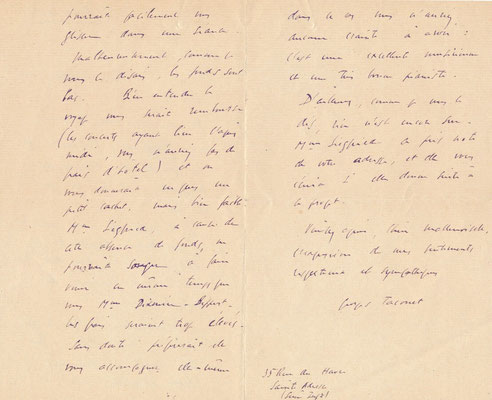 pourrait facilement vous
glisser dans une séance
Malheureusement, comme je
vous le disais, les fonds sont
bas. Bien entendu le
voyage vous serait remboursé
(les concerts ayant lieu l'après
midi, vous n'auriez pas de
frais d'hôtel) et on
vous donnerait en plus un
petit cachet, mais bien faible
Mme Siegfried, à cause de
cette absence de fonds, ne
pourrait songer à faire
venir en même temps que
vous Mme
les frais seraient trop élevés.
Sans doute préférerait-elle
vous accompagner elle-même
dans ce cas vous n'auriez
aucune crainte à avoir :
c'est une excellente musicienne
et une très bonne pianiste.
D'ailleurs, comme je vous le
dis, rien n'est encore sûr.
Mme Siegfried a pris note
de votre adresse, et elle vous
écrira si elle donne suite à
ce projet.
Veuillez agréer, chère mademoiselle,
l'expression de mes sentiments
respectueux et sympathiques
Georges Taconet
35 Rue du Havre
Sainte Adresse
(Seine Infre)